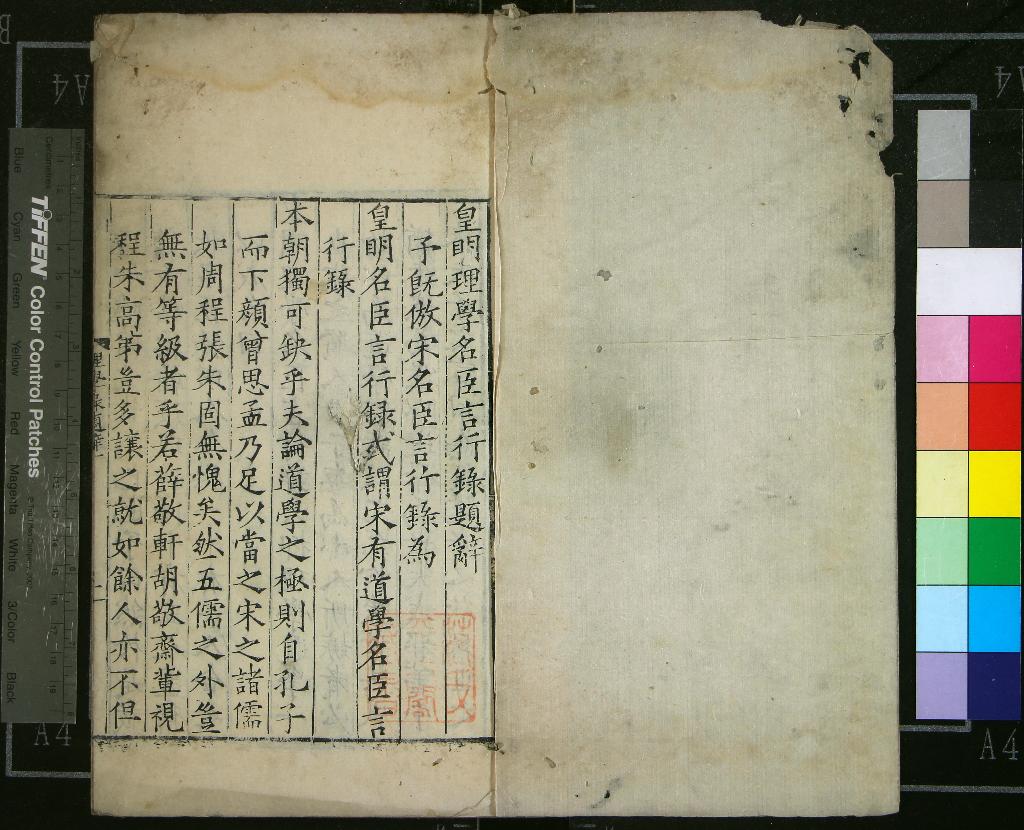 皇明理學名臣言行錄題辭
予旣倣宋名臣言行錄為
皇明名臣言行録或謂宋有道學名臣言
行錄
本朝獨可缺乎夫論道學之極則自孔子
而下顔曾思孟乃足以當之宋之諸儒
如周程張朱固無愧矣然五儒之外豈
無有等級者乎若薛敬軒胡敬齋輩視
程朱高第豈多讓之就如餘人亦不但
A4
A4
A4
A4
B
TIFFEN Color Control Patches
Blue
Cyan
Green
Yellow
Red
Magenta
White
3/Color
Black
Centimetres